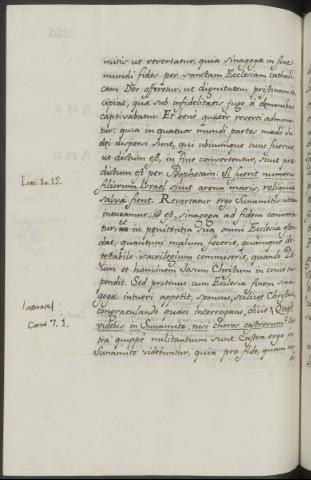 mitis ut revertatur, quia Sinagoga in fine
mundi fides per sanctam Ecclesiam catholi-
cam Deo offeretur, ut dignitatem pristinam re-
cipiat, quæ sub infidelitatis jugo a demonibus
captivabatur. Et bene quater reverti admone-
tur; quia in quatuor mundi partes
dispersi sunt, qui ubicunque tunc fuerint
ut dictum est, in fine convertentur, sicut præ-
dictum est per Prophetam: Si fuerit numerus
Isai. 10. 22.
filiorum Israel sicut arena maris, reliquiæ
salvæ fient. Revertatur ergo Sunamitis ut eam
intueamur: id est, Sinagoga ad fidem converta-
tur, et in penitentia sua omni Ecclesiæ
dat, quantum malum fecerit, quamque de-
testabile sacrilegium commiserit, quando De-
um et hominem Jesum Christum in cruce sus-
pendit. Sed protinus cum Ecclesia finem Sina-
gogæ intueri appetit, sponsus, scilicet Christus,
congratulando quasi interrogans, dicit: Quid
Cant. 7. 1.
videbis in Sunamite, nisi choros castrorum? Cas-
tra quippe militantium sunt. Castra ergo in
Sunamite videbuntur, quia pro fide, quam